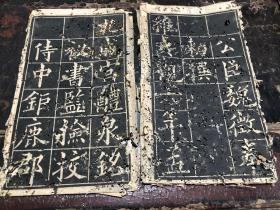 九成宮醴泉銘
秘書監撿校
侍中鉅鹿郡
公臣魏徵奉
勑撰
維貞觀六年孟